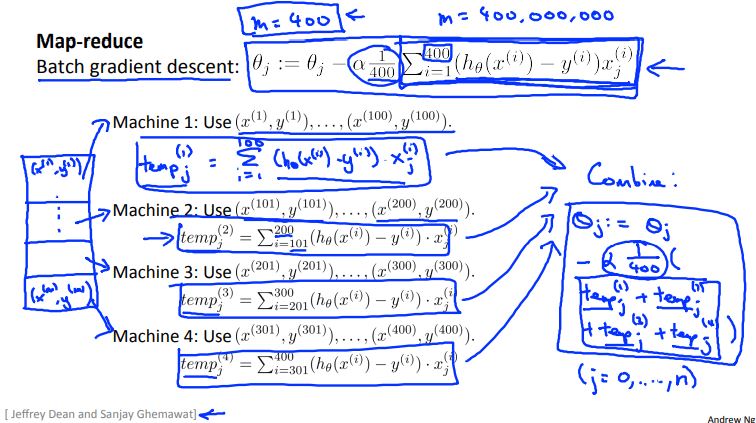 m = 400 ← m = 400,000,000
Map-reduce
Batch gradient descent: θ_j := θ_j − α (1/400) ∑_{i=1}^{400} (h_θ(x^{(i)}) − y^{(i)}) x_j^{(i)}
Machine 1: Use (x^{(1)}, y^{(1)}), . . . , (x^{(100)}, y^{(100)}).
temp_j^{(1)} = ∑_{i=1}^{100} (h_θ(x^{(i)}) − y^{(i)}) · x_j^{(i)}
(x^{(1)}, y^{(1)})
⋮
(x^{(m)}, y^{(m)})
Machine 2: Use (x^{(101)}, y^{(101)}), . . . , (x^{(200)}, y^{(200)}).
temp_j^{(2)} = ∑_{i=101}^{200} (h_θ(x^{(i)}) − y^{(i)}) · x_j^{(i)}
Machine 3: Use (x^{(201)}, y^{(201)}), . . . , (x^{(300)}, y^{(300)}).
temp_j^{(3)} = ∑_{i=201}^{300} (h_θ(x^{(i)}) − y^{(i)}) · x_j^{(i)}
Machine 4: Use (x^{(301)}, y^{(301)}), . . . , (x^{(400)}, y^{(400)}).
temp_j^{(4)} = ∑_{i=301}^{400} (h_θ(x^{(i)}) − y^{(i)}) · x_j^{(i)}
Combine:
θ_j := θ_j
− α (1/400) (
temp_j^{(1)} + temp_j^{(2)}
+ temp_j^{(3)} + temp_j^{(4)} )
(j = 0, ..., n)
[ Jeffrey Dean and Sanjay Ghemawat]
Andrew Ng